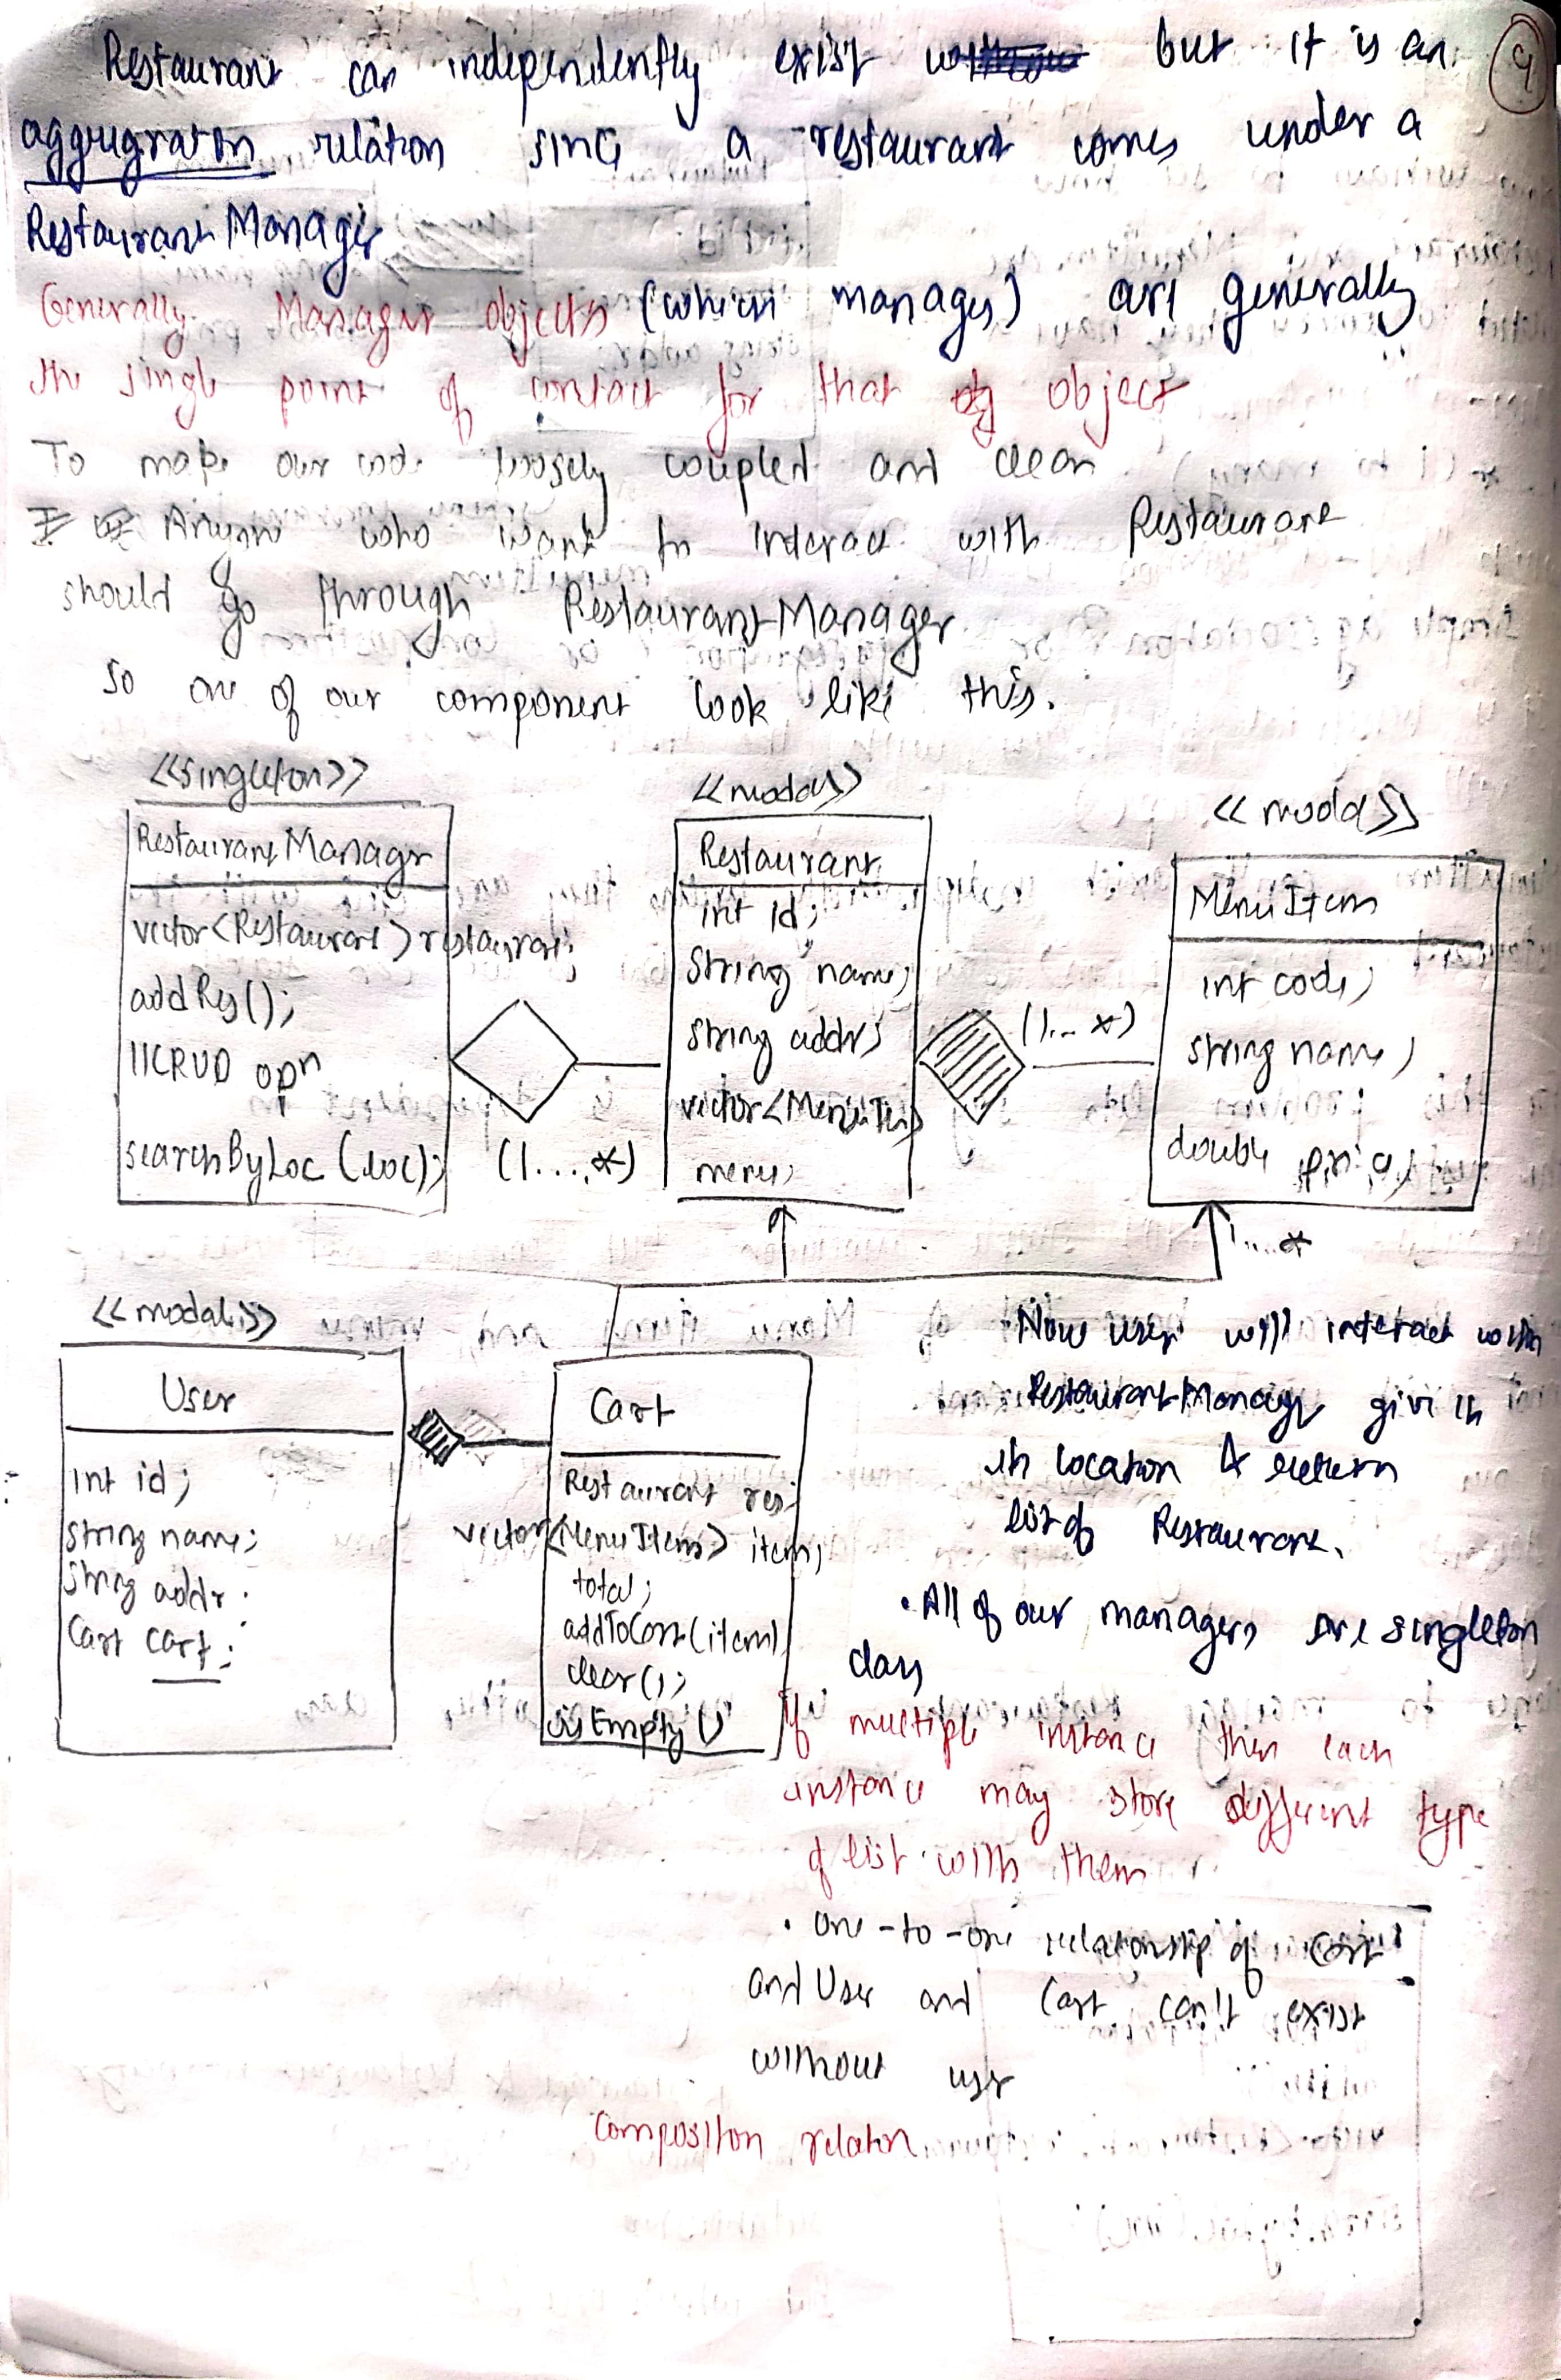 Restaurant can independently exist but it is an
aggrigraton relation sinc a restaurant comes under a
Restaurant Manager
Generally Manager objects (which manages) are generally
the single point of contact for that object
To make our code loosely coupled and clean
Anyone who want to interact with Restaurant
should go through Restaurant Manager
so one of our component look like this.
<<singleton>>
<<modal>>
<<modal>>
Restaurant Manager
vector<Restaurant> restaurant;
addRes();
//CRUD opn
searchByLoc (loc);
(1....*)
Restaurant
int id;
string name;
string addr;
vector<MenuItem>
menu;
(1...*)
MenuItem
int code;
string name;
double price;
1....*
<<modal>>
User
int id;
string name;
string addr.
Cart cart;
Cart
Restaurant res;
vector<MenuItem> item;
total;
addToCart(item)
clear();
isEmpty()
Now user will interact with
Restaurant Manager give it
its location & return
list of Restaurant.
• All of our managers are singleton
class
If multiple instance then each
instance may store different type
of list with them
• one-to-one relationship of Cart
and User and Cart can't exist
without user
composition relation
9